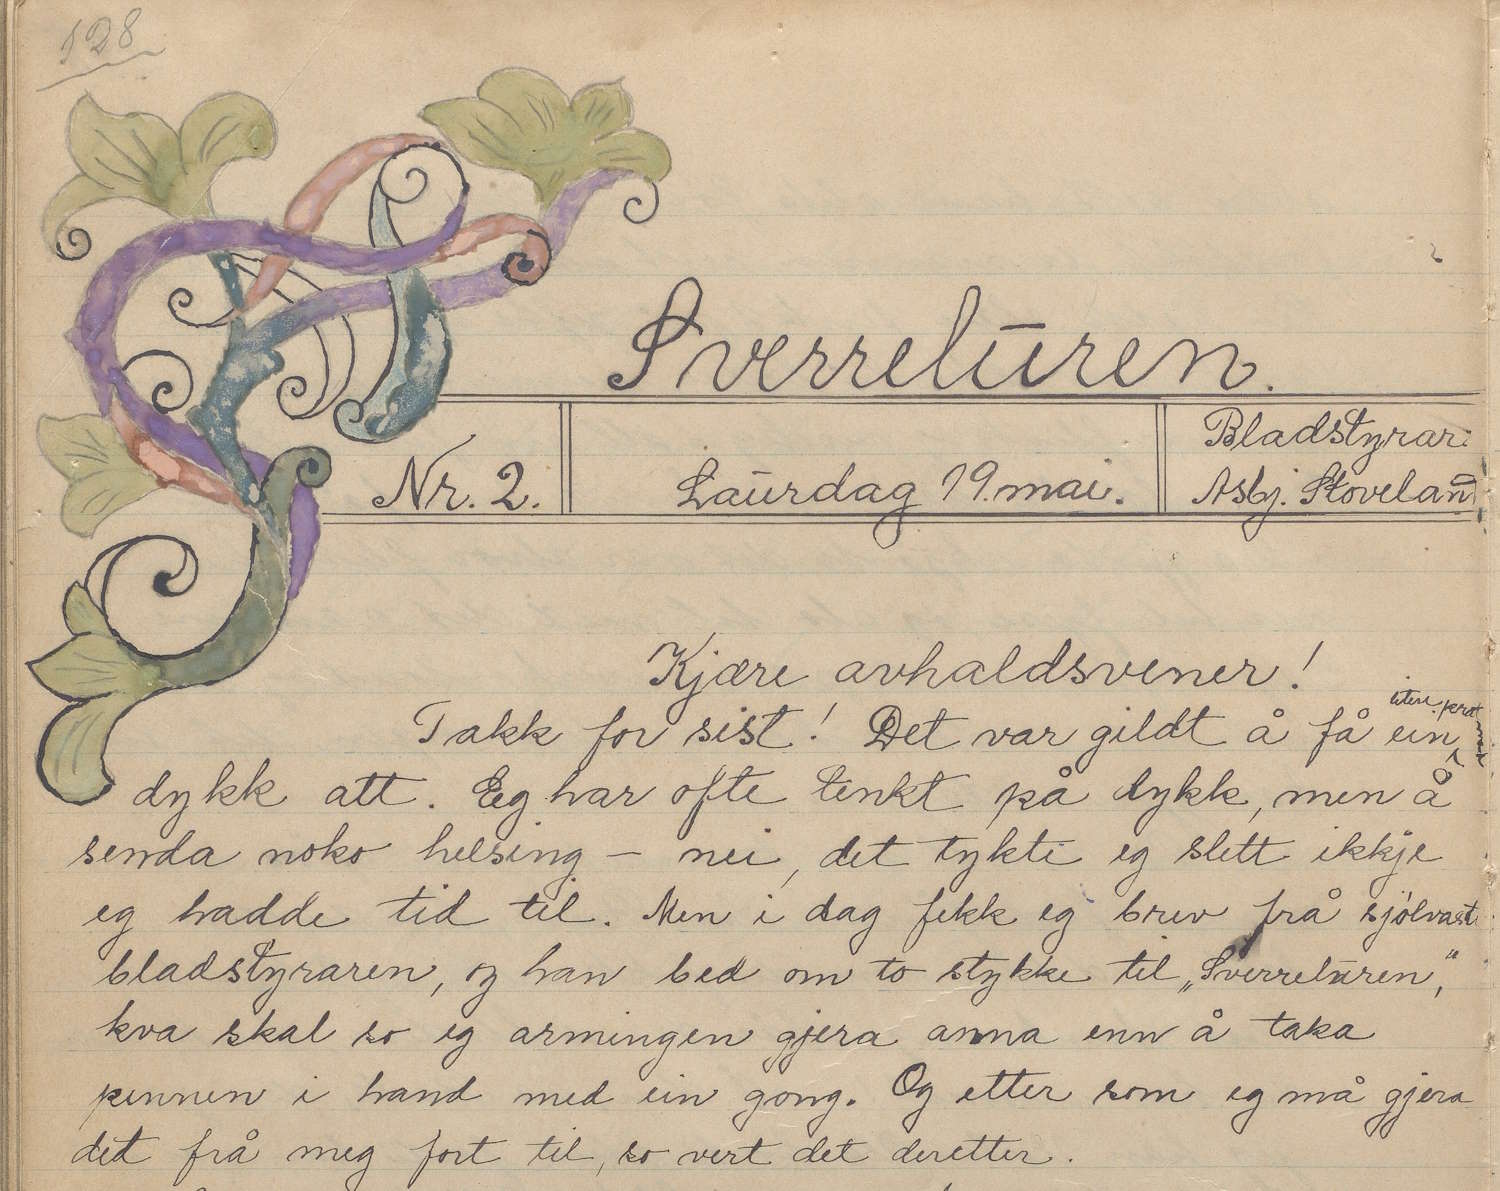 128
Sverreluren.
Nr. 2.
Laurdag 19. mai.
Bladstyrar:
Asbj. Stoveland
Kjære avhaldsvener!
Takk for sist! Det var gildt å få ein liten prat med
dykk att. Eg har ofte tenkt på dykk, men å
senda noko helsing – nei, det tykte eg slett ikkje
eg hadde tid til. Men i dag fekk eg brev frå sjølvaste
bladstyraren, og han bed om to stykke til „Sverreluren,“
kva skal so eg armingen gjera anna enn å taka
pennen i hand med ein gong. Og etter som eg må gjera
det frå meg fort til, so vert det deretter.